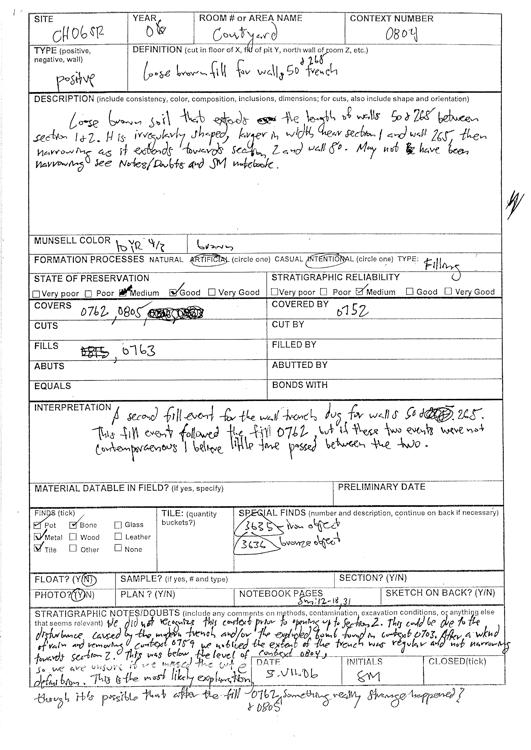 SITE CH06SR
YEAR 06
ROOM # or AREA NAME Courtyard
CONTEXT NUMBER 0804
TYPE (positive, negative, wall) positive
DEFINITION (cut in floor of X, fill of pit Y, north wall of room Z, etc.)
Loose brown fill for walls 50 & 268 trench
DESCRIPTION (include consistency, color, composition, inclusions, dimensions; for cuts, also include shape and orientation)
Loose brown soil that extends the length of walls 50 & 268 between
section 1 & 2. It is irregularly shaped, larger in width near section 1 and wall 265, then
narrowing as it extends towards section 2 and wall 80. May not have been
narrowing see Notes/Doubts and SM notebook.
MUNSELL COLOR 10YR 4/3 brown
FORMATION PROCESSES NATURAL ARTIFICIAL (circle one) CASUAL INTENTIONAL (circle one) TYPE: Filling
STATE OF PRESERVATION
STRATIGRAPHIC RELIABILITY
Very poor Poor Medium Good Very Good
Very poor Poor Medium Good Very Good
COVERS 0762, 0805
COVERED BY 0752
CUTS
CUT BY
FILLS 0815, 0763
FILLED BY
ABUTS
ABUTTED BY
EQUALS
BONDS WITH
INTERPRETATION A second fill event for the wall trench dug for walls 50 & 265.
This fill event followed the fill 0762 but if these two events were not
contemporaenous I believe little time passed between the two.
MATERIAL DATABLE IN FIELD? (if yes, specify)
PRELIMINARY DATE
FINDS (tick)
Pot Bone Glass
Metal Wood Leather
Tile Other None
TILE: (quantity buckets?)
SPECIAL FINDS (number and description, continue on back if necessary)
3635 - iron object
3636 bronze object
FLOAT? (Y/N)
SAMPLE? (if yes, # and type)
SECTION? (Y/N)
PHOTO? (Y/N)
PLAN? (Y/N)
NOTEBOOK PAGES SM: 12-18, 31
SKETCH ON BACK? (Y/N)
STRATIGRAPHIC NOTES/DOUBTS (include any comments on methods, contamination, excavation conditions, or anything else
that seems relevant) We did not recognize this context prior to opening up section 2. This could be due to the
disturbance caused by the modern trench and/or the exploded bomb found in context 0703. After a wkend
of rain and removing context 0759 we noticed the extent of the trench was regular and not narrowing
towards section 2. This was below the level of context 0804,
so we are unsure if we missed the
definition. This is the most likely explanation,
DATE 5.VII.06
INITIALS SM
CLOSED(tick)
though it is possible that after the fill 0762, something really strange happened?
& 0805